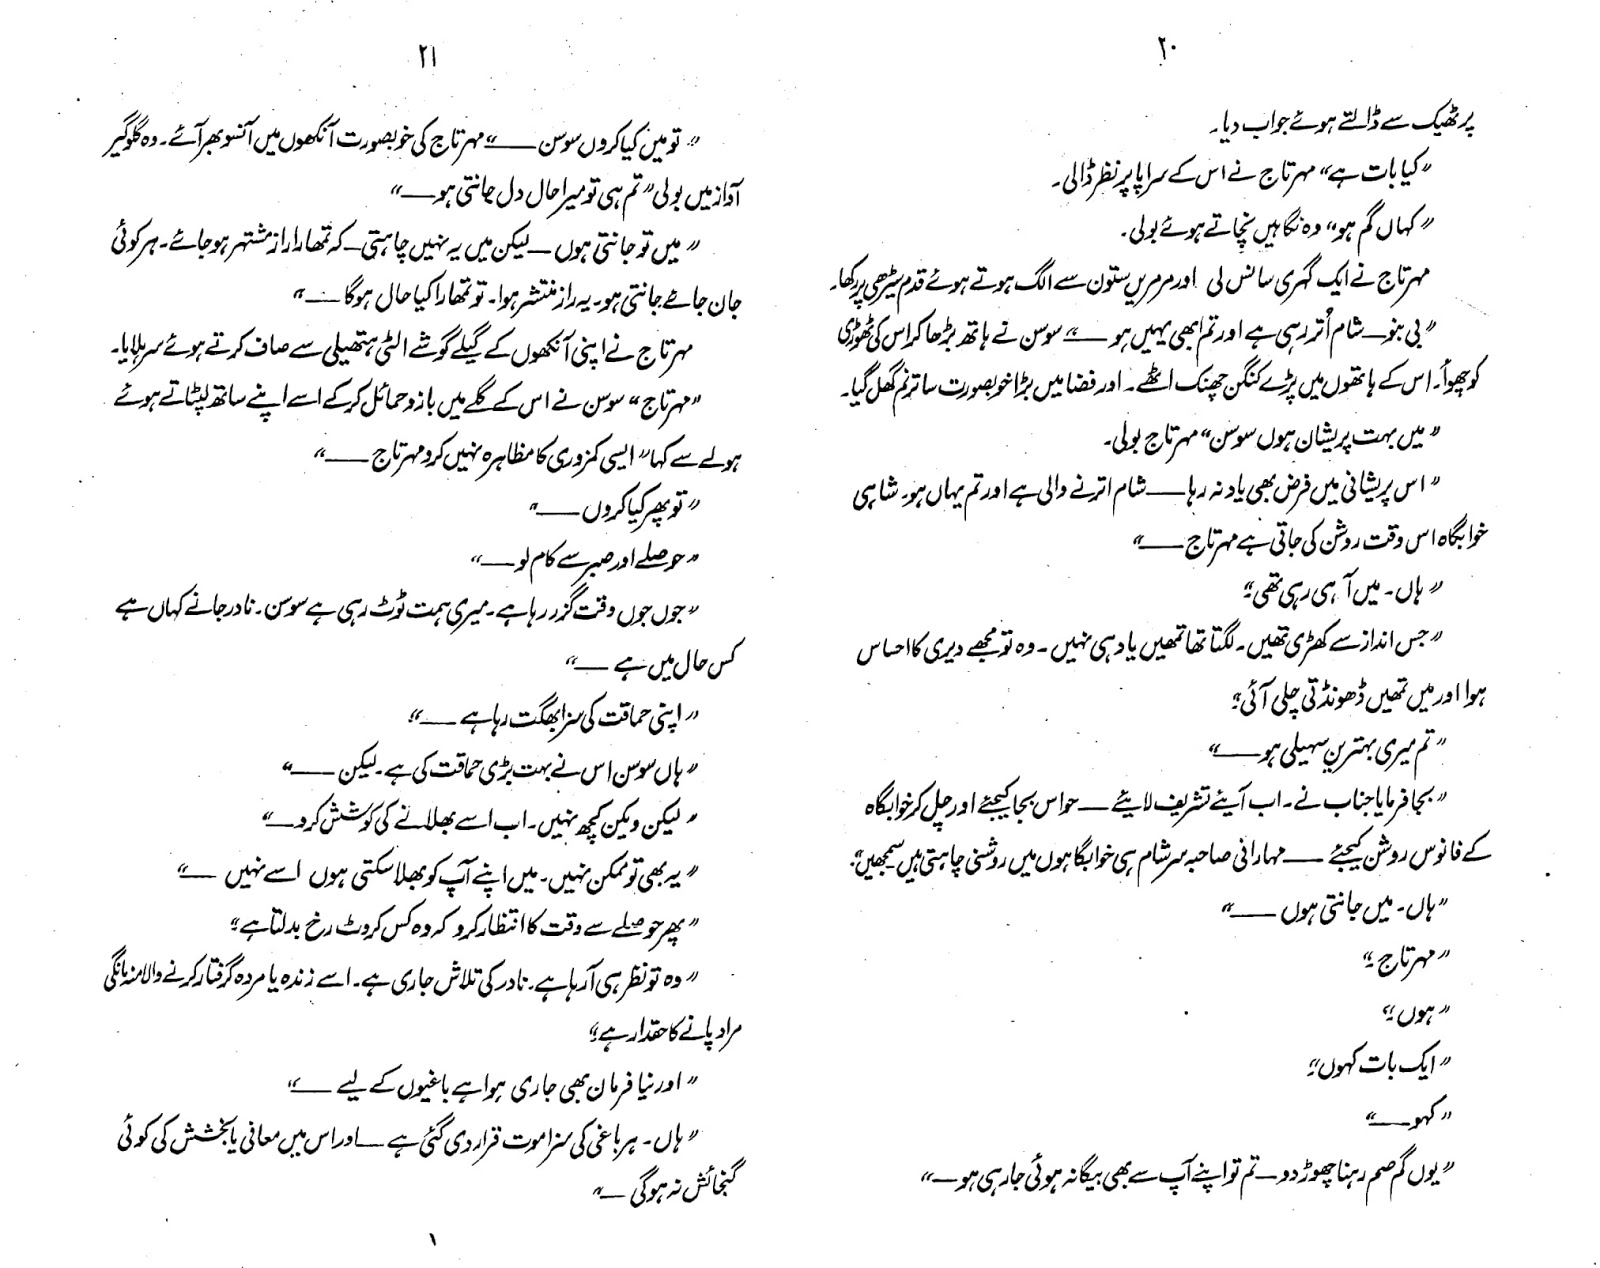 ۲۰
پر ٹھیک سے ڈالتے ہوئے جواب دیا۔
"کیا بات ہے" مہرتاج نے اس کے سراپا پر نظر ڈالی۔
"کہاں گم ہو" وہ نگاہیں نچاتے ہوئے بولی۔
مہرتاج نے ایک گہری سانس لی اور مرمریں ستون سے الگ ہوتے ہوئے قدم سیڑھی پر رکھا۔
"بی بنو — شام اُتر رہی ہے اور تم ابھی یہیں ہو —" سوسن نے ہاتھ بڑھا کر اس کی ٹھوڑی
کو چھوا۔ اس کے ہاتھوں میں پڑے کنگن چھنک اٹھے۔ اور فضا میں بڑا خوبصورت سا ترنم گھل گیا۔
"میں بہت پریشان ہوں سوسن" مہرتاج بولی۔
"اس پریشانی میں فرض بھی یاد نہ رہا — شام اترنے والی ہے اور تم یہاں ہو۔ شاہی
خوابگاہ اس وقت روشن کی جاتی ہے مہرتاج —"
"ہاں۔ میں آ ہی رہی تھی۔"
"جس انداز سے کھڑی تھیں۔ لگتا تھا تمھیں یاد ہی نہیں۔ وہ تو مجھے دیری کا احساس
ہوا اور میں تمھیں ڈھونڈتی چلی آئی۔"
"تم میری بہترین سہیلی ہو —"
"بجا فرمایا جناب نے۔ اب آیئے تشریف لایئے — حواس بجا کیجئے اور چل کر خوابگاہ
کے فانوس روشن کیجئے — مہارانی صاحبہ سرشام ہی خوابگاہوں میں روشنی چاہتی ہیں سمجھیں۔"
"ہاں۔ میں جانتی ہوں —"
"مہرتاج۔"
"ہوں۔"
"ایک بات کہوں۔"
"کہو —"
"یوں گم صم رہنا چھوڑ دو — تم تو اپنے آپ سے بھی بیگانہ ہوئی جا رہی ہو —"
۲۱
"تو میں کیا کروں سوسن —" مہرتاج کی خوبصورت آنکھوں میں آنسو بھر آئے۔ وہ گلوگیر
آواز میں بولی "تم ہی تو میرا حال دل جانتی ہو —"
"میں تو جانتی ہوں — لیکن میں یہ نہیں چاہتی — کہ تمھارا راز مشتہر ہو جائے۔ ہر کوئی
جان جائے جانتی ہو۔ یہ راز منتشر ہوا۔ تو تمھارا کیا حال ہوگا —"
مہرتاج نے اپنی آنکھوں کے گیلے گوشے الٹی ہتھیلی سے صاف کرتے ہوئے سر ہلایا۔
"مہرتاج" سوسن نے اس کے گلے میں بازو حمائل کر کے اسے اپنے ساتھ لپٹاتے ہوئے
ہولے سے کہا "ایسی کمزوری کا مظاہرہ نہیں کرو مہرتاج —"
"تو پھر کیا کروں —"
"حوصلے اور صبر سے کام لو —"
"جوں جوں وقت گزر رہا ہے۔ میری ہمت ٹوٹ رہی ہے سوسن۔ نادر جانے کہاں ہے
کس حال میں ہے —"
"اپنی حماقت کی سزا بھگت رہا ہے —"
"ہاں سوسن اس نے بہت بڑی حماقت کی ہے۔ لیکن —"
"لیکن ویکن کچھ نہیں۔ اب اسے بھلانے کی کوشش کرو —"
"یہ بھی تو ممکن نہیں۔ میں اپنے آپ کو بھلا سکتی ہوں اسے نہیں —"
"پھر حوصلے سے وقت کا انتظار کرو کہ وہ کس کروٹ رخ بدلتا ہے۔"
"وہ تو نظر ہی آ رہا ہے۔ نادر کی تلاش جاری ہے۔ اسے زندہ یا مردہ گرفتار کرنے والا منہ مانگی
مراد پانے کا حقدار ہے۔"
"اور نیا فرمان بھی جاری ہوا ہے باغیوں کے لیے —"
"ہاں۔ ہر باغی کی سزا موت قرار دی گئی ہے — اور اس میں معافی یا بخشش کی کوئی
گنجائش نہ ہوگی —"
۱